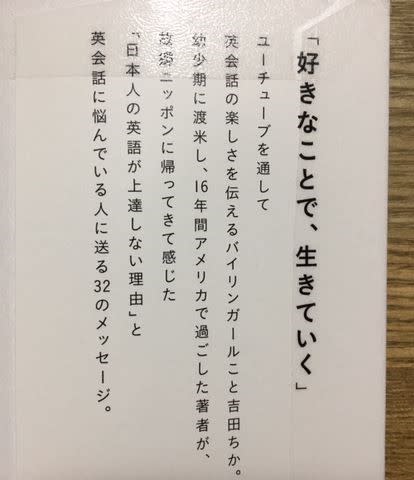 「好きなことで、生きていく」
ユーチューブを通して
英会話の楽しさを伝えるバイリンガールこと吉田ちか。
幼少期に渡米し、16年間アメリカで過ごした著者が、
故郷ニッポンに帰ってきて感じた
「日本人の英語が上達しない理由」と
英会話に悩んでいる人に送る32のメッセージ。